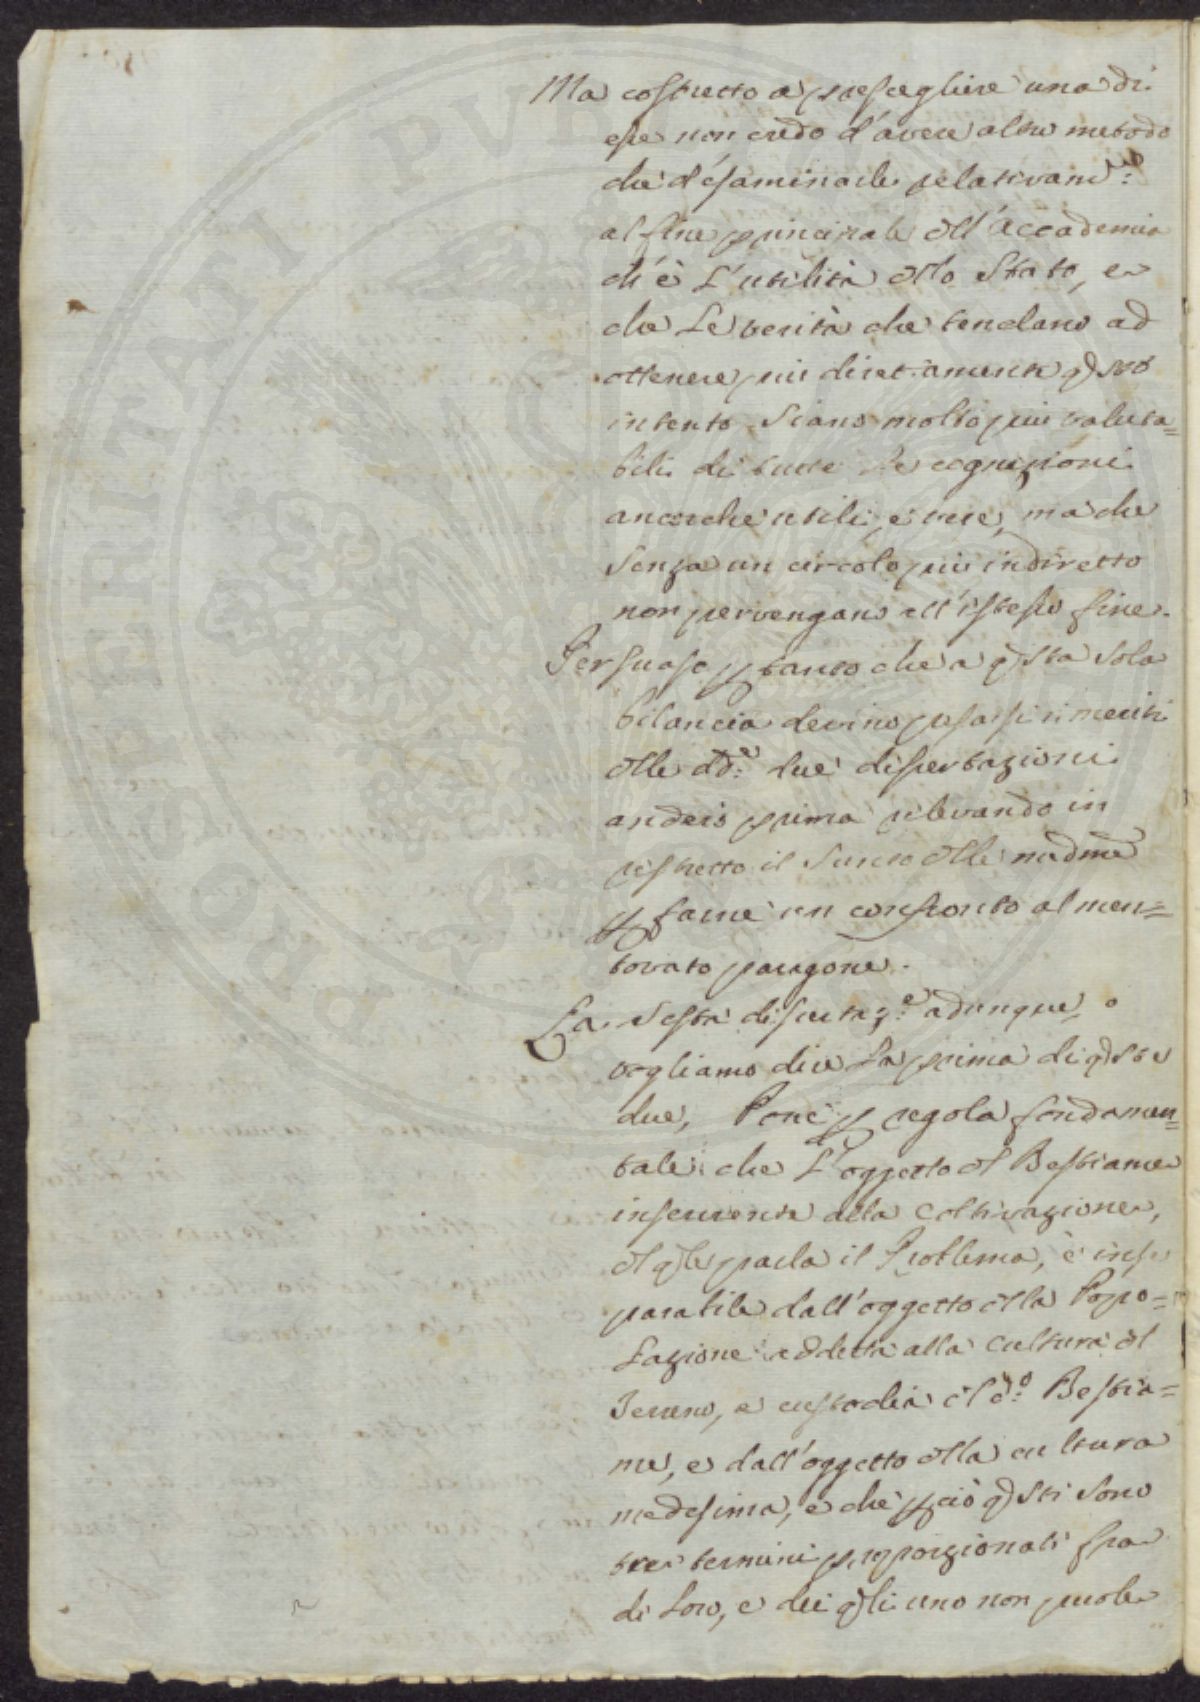 Ma costretto a prescegliere una di
esse non credo d'avere altro metodo
che d'esaminarle relativam.e:
al fine principale dll'Accademia
ch'è L'utilità dllo Stato, e
che Le verità che tendano ad
ottenere più direttamente qsto
intento siano molto più valuta=
bili di tutte le cognizioni
ancorchè utili, e vere, ma che
senza un circolo più indiretto
non pervengano all'istesso fine.
Persuaso ptanto che a qsta sola
bilancia devino pesarsi i meriti
dlle dd.e due dissertazioni
anderò prima rilevando in
ristretto il sunto dlle medme
p farne un confronto al men=
tovato paragone.
La sesta dissertaz.e adunque, o
vogliamo dire La prima di qste
due, Pone p regola fondamen=
tale che L'oggetto dl Bestiame
inserviente alla coltivazione,
dl qle parla il Problema, è inse
parabile dall'oggetto dlla Popo=
Lazione addetta alla cultura dl
Terreno, e custodia dl d.o Bestia=
me, e dall'oggetto dlla cultura
medesima, e che pciò qsti sono
tre termini proporzionali fra
di Loro, e dei qli uno non puole
PROSPERITATI PVBLICAE